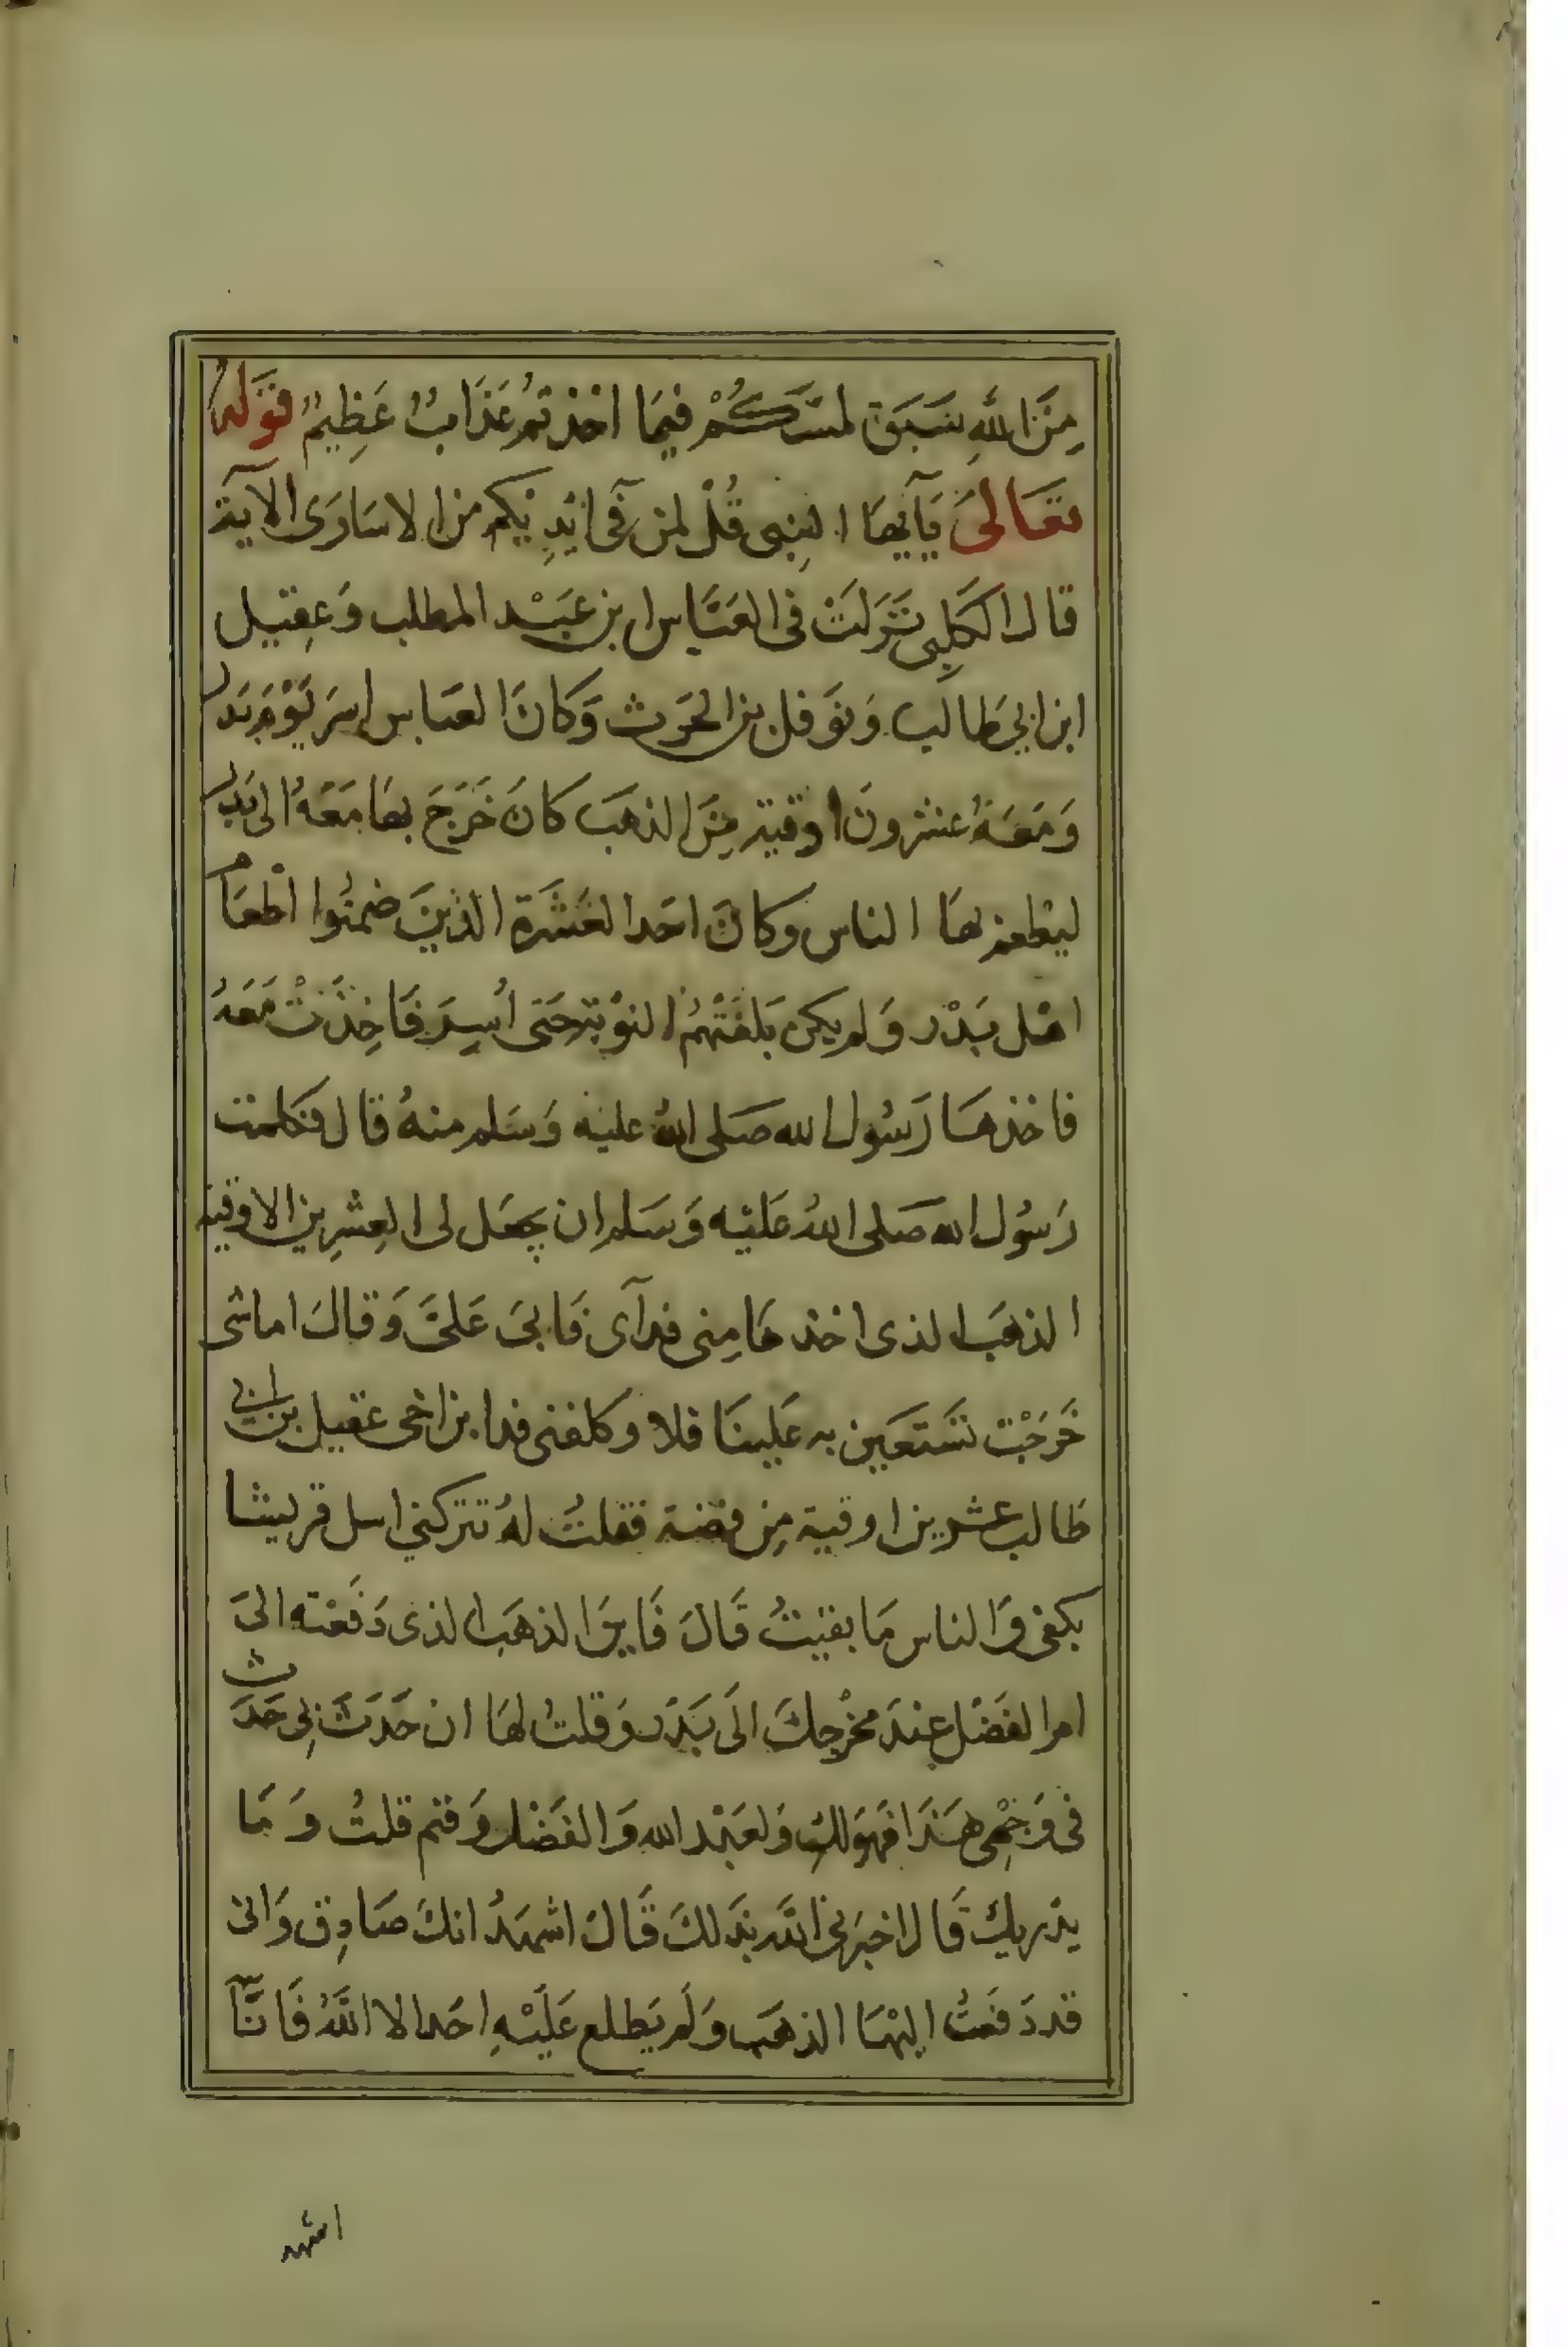 مِنَ اللهِ سَبَقَ لمسَّكُمْ فيمَا اخذتمُ عَذَابٌ عَظِيمٌ قوَله
تعَالىَ يَآيهَا النبِى قُلْ لمن فِى ايْدِيْكم من الاسَارَى الآية
قال الكَلِبى نَزَلَتْ فى العَبَّاس ابن عَبَيْد المطلب وَعِقيل
ابن ابي طَالب وَنوَفل بن الحَرَث وَكانَ العَبَاس اسِرَ يَوْمَ بَدر
وَمَعَهُ عشرونَ اوقية مِنَ الذهَب كانَ خَرَجَ بهَا مَعَهُ الى بَدر
ليُطعم بهَا الناس وكانَ احَد العَشَرَة الذينَ ضمنُوا اطْعَام
اهْل بَدْر وَلم يكن بَلغَتْهُمُ النوْبة حَتى اُسِرَ فَاخِذَتْ مَعَهُ
فاخذهَا رَسُول الله صَلى اللهُ عليْه وَسَلم منهُ قال فكلمت
رَسُول الله صَلى اللهُ عَليْه وَسَلم ان يجعَل لى العِشرِين الاوقية
الذهَب الذى اخذهَا مِنى فدآى فَابىَ عَلىَّ وَقالَ اماشى
خَرَجْت تسَتعَين به عَلينَا فلا وكلفنى فدا بن اخى عقيل بن ابى
طالب عشرين اوقية مِن فضة فقلتُ لهُ تتركني اسل قريشا
بكفى وَالناس مَا بقيتُ قَالَ فَاينَ الذهَب الذى دَفعْته الىَ
ام الفَضْل عِندَ مخْرجكَ الَى بَدَر وَقلتُ لهَا ان حَدَثَ بِى حَدَث
فى وَجْهِى هَذَا فهوَ لكِ وَلعَبْد الله وَالفَضْل وَقثم قلتُ وَمَا
يدْريكَ قَال اخبَرنى اللَّه بذَلكَ قَالَ اشهدُ انكَ صَادِق وَانى
قد دَفعْتُ اليْهَا الذهَب وَلَم يَطلع عَلَيْهِ احَدا لا اللَّهُ فَانَّآ
اشهد